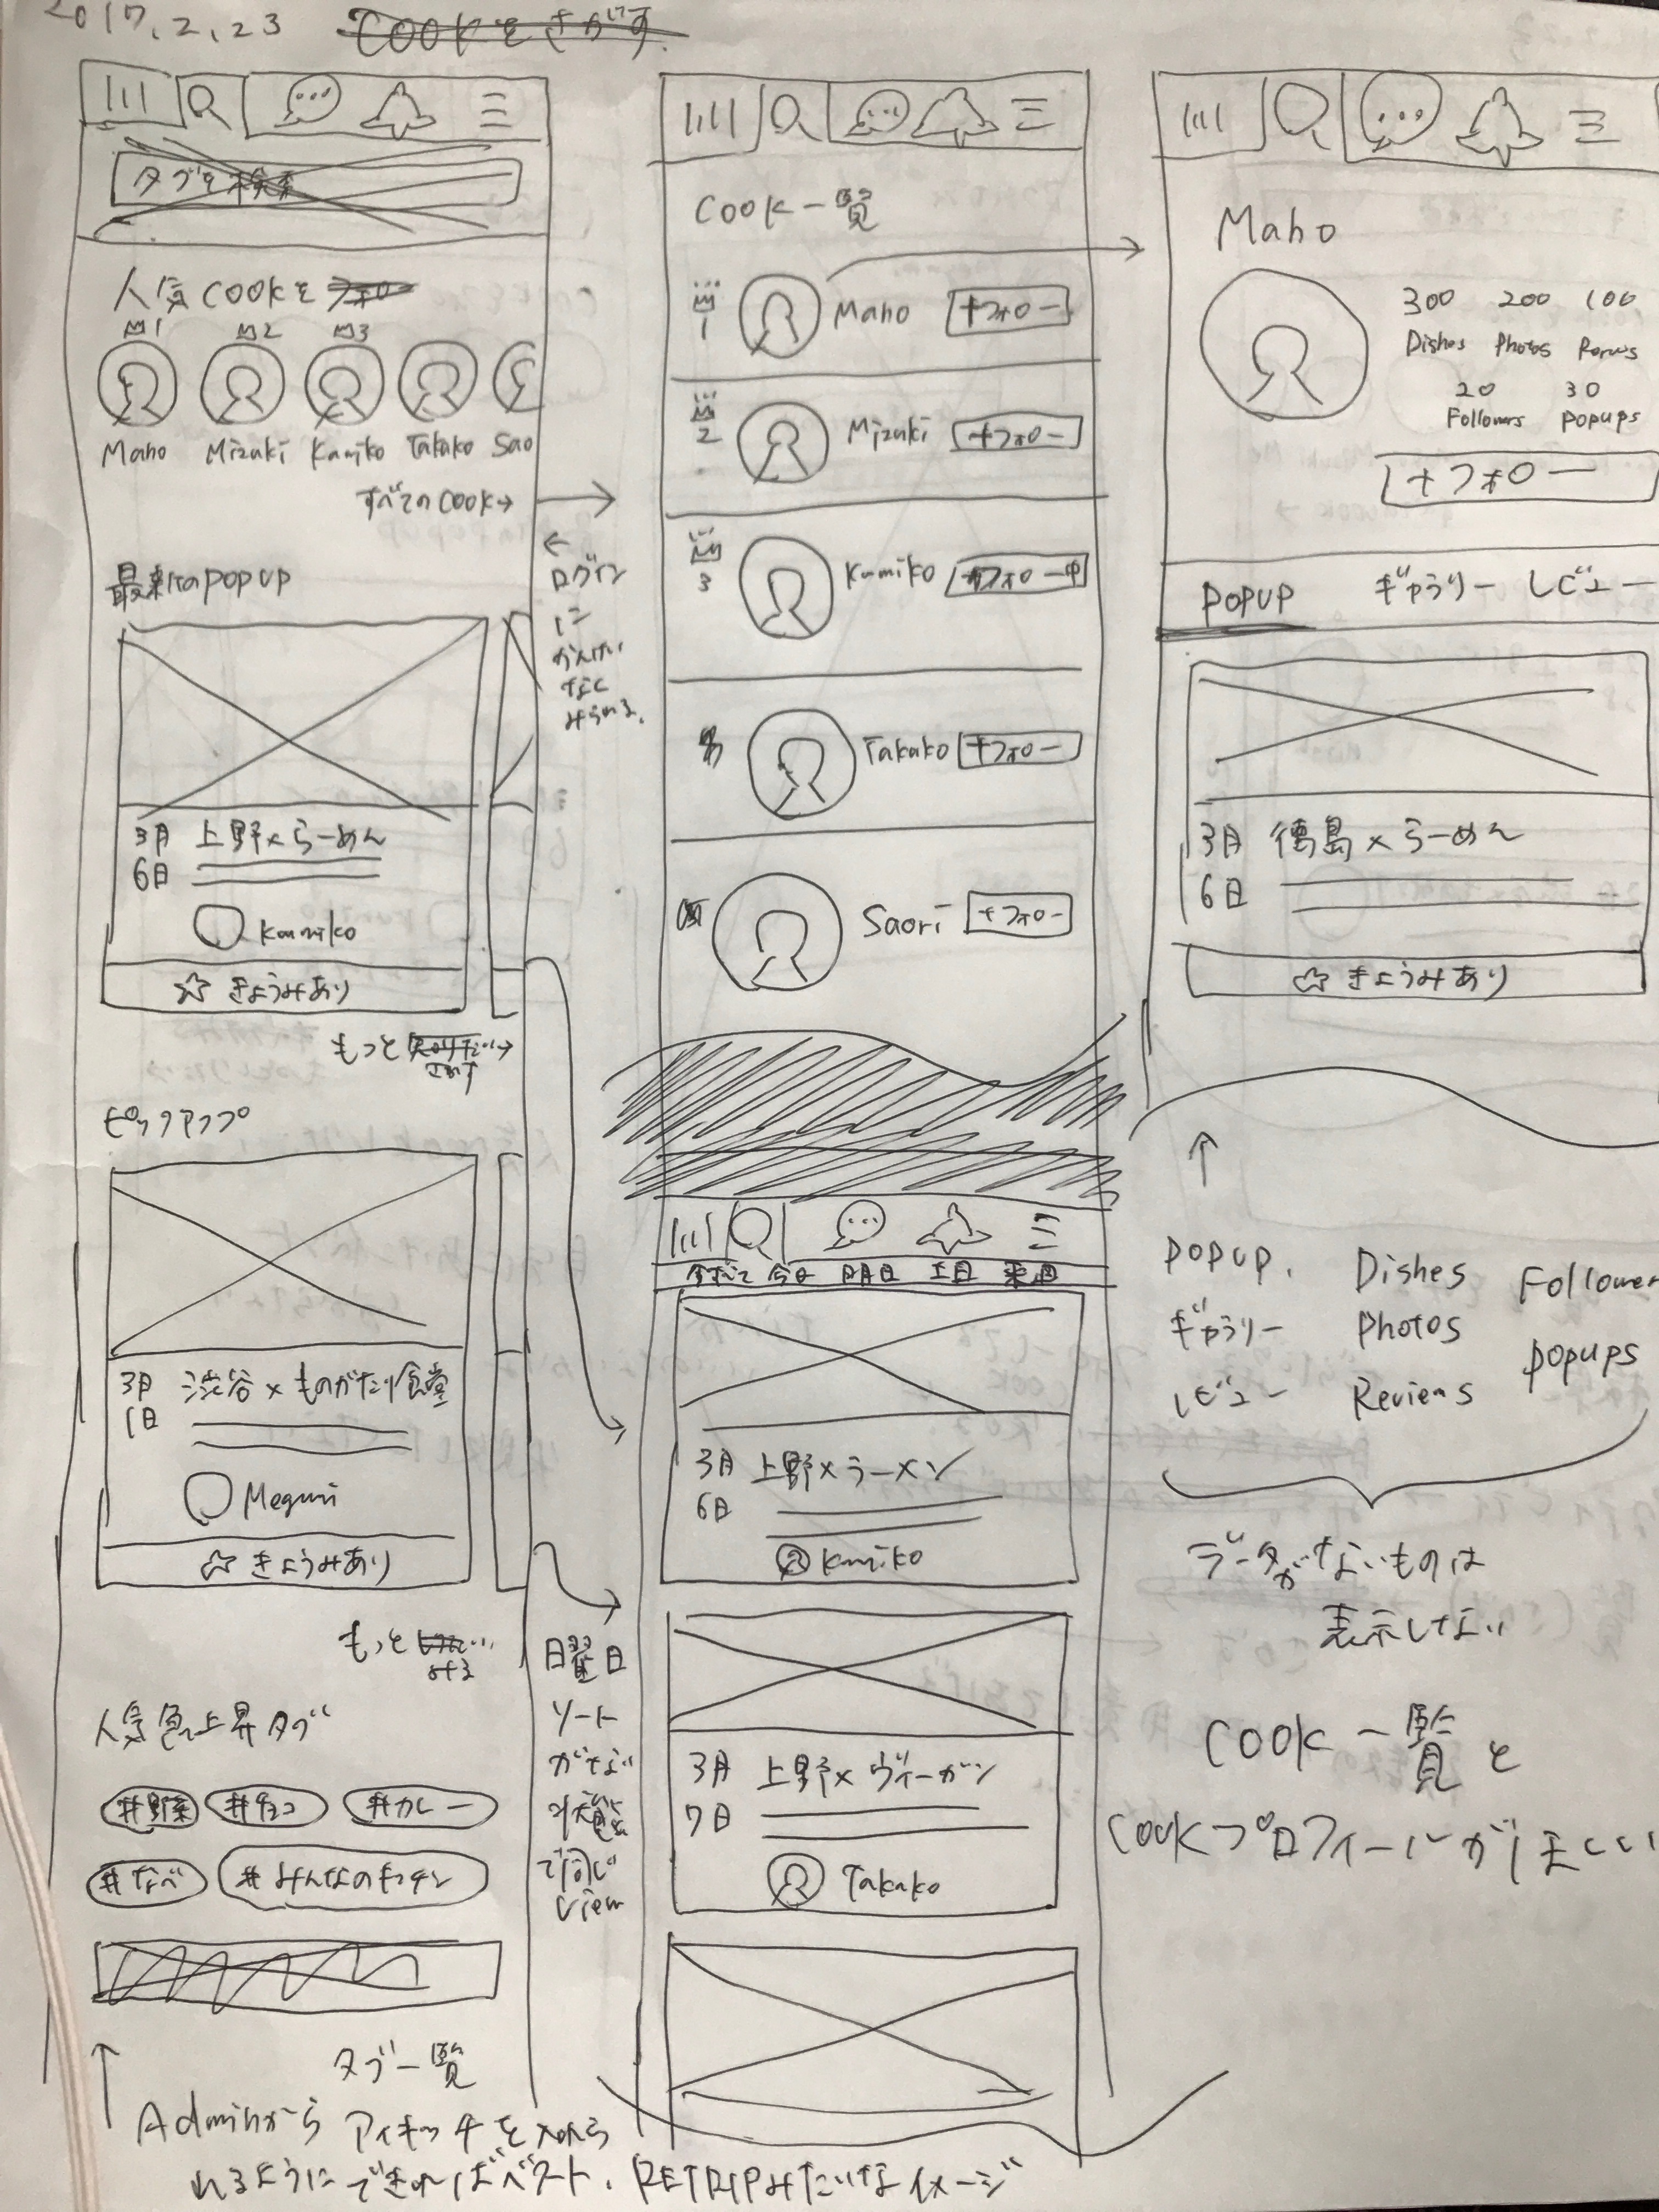 2017.2.23 COOKをさがす
タグを検索
人気COOKを フォロー
1 2 3
Maho Mizuki Kumiko Takako Sao
すべてのCOOK→
←
ログイン
に
かんけい
なく
みられる.
最新のPOPUP
3月 上野×らーめん
6日
Kumiko
☆ きょうみあり
もっと 知りたい→
さがす
ピックアップ
3月 渋谷×ものがたり食堂
1日
Megumi
☆ きょうみあり
もっと
みる
人気急上昇タグ
#野菜 #チョコ #カレー
#なべ #みんなのキッチン
タグ一覧
↑
Adminから アイキャッチを入れら
れるようにできればベスト. RETRIPみたいなイメージ
日曜日
ソート
がない
状態
で同じ
View
COOK一覧
1 Maho +フォロー
2 Mizuki +フォロー
3 Kumiko フォロー中
Takako +フォロー
Saori +フォロー
すべて 今日 明日 土日 来週
3月 上野×ラーメン
6日
Kumiko
3月 上野×ヴィーガン
7日
Takako
Maho
300 200 100
Dishes Photos Reviews
20 30
Followers Popups
+フォロー
POPUP ギャラリー レビュー
3月 徳島×らーめん
6日
☆ きょうみあり
↑
POPUP. Dishes Follower
ギャラリー Photos Popups
レビュー Reviews
データがないものは
表示しない
COOK一覧と
COOKプロフィールがほしい